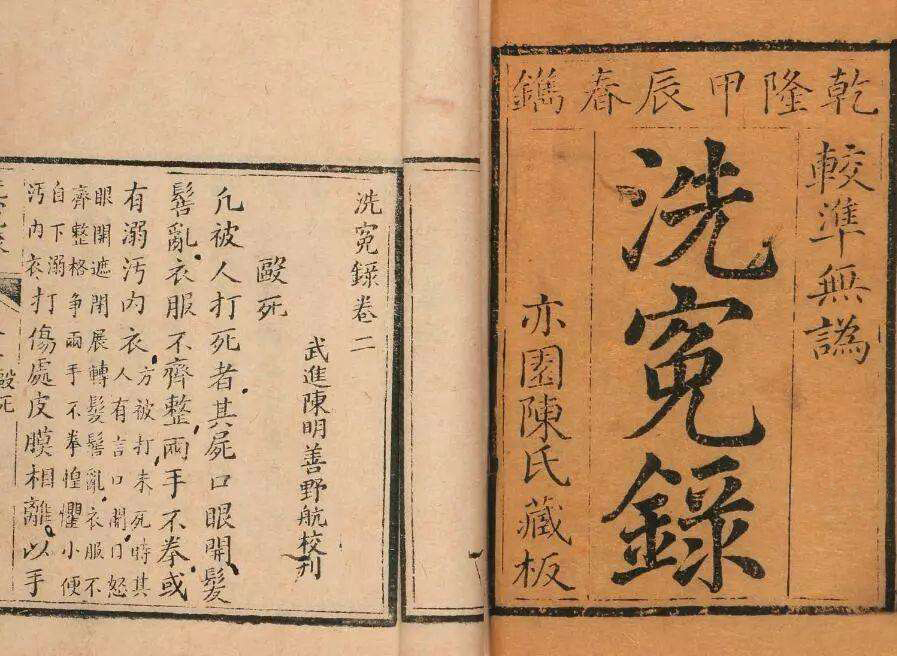 乾隆甲辰春鐫
較準無譌
洗寃錄
亦園陳氏藏板
洗寃錄卷二
武進陳明善野航校刊
毆死
凡被人打死者其屍口眼開髮
髻亂衣服不齊整兩手不拳或
有溺汚內衣
方被打未死時其
人有言口開目怒
眼開遮閉展轉髮髻亂衣服不
齊整格爭兩手不拳惶懼小便
自下溺
汚內衣
打傷處皮膜相離以手
毆死